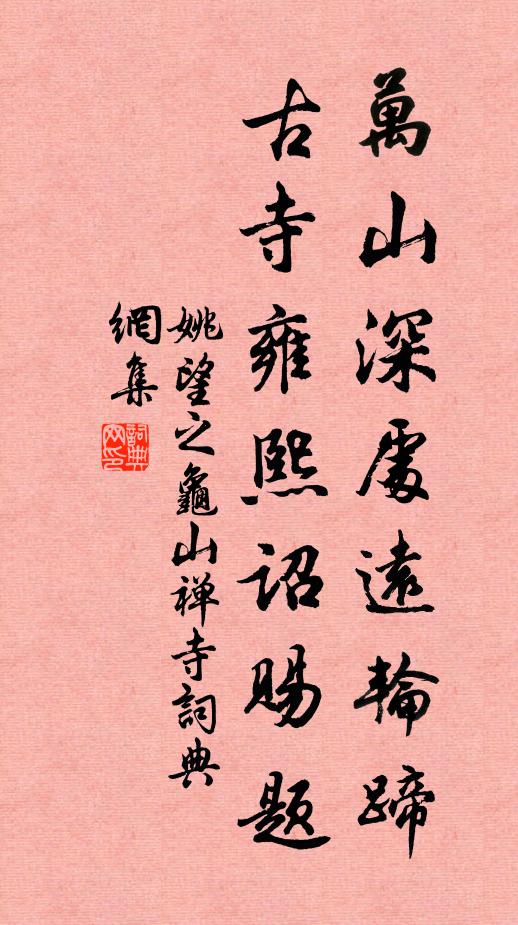 萬山深處遠輪蹄
古寺雍熙詔賜題
姚望之龜山禅寺詞典
網集
詞典
网印